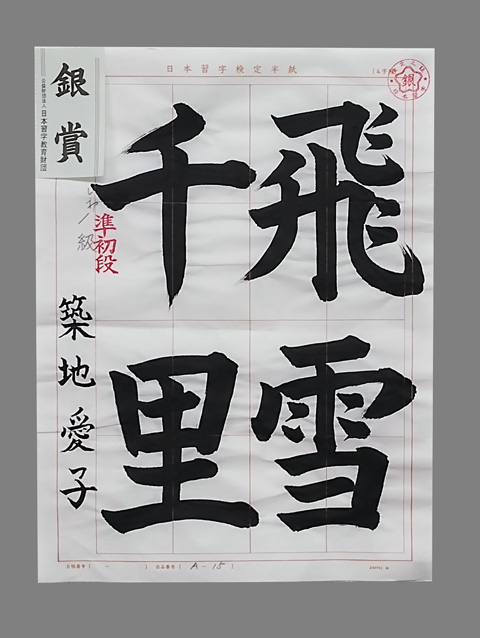 日本習字検定半紙
飛雪
千里
準初段
築地愛子
銀賞
公益財団法人 日本習字教育財団
銀
A-15